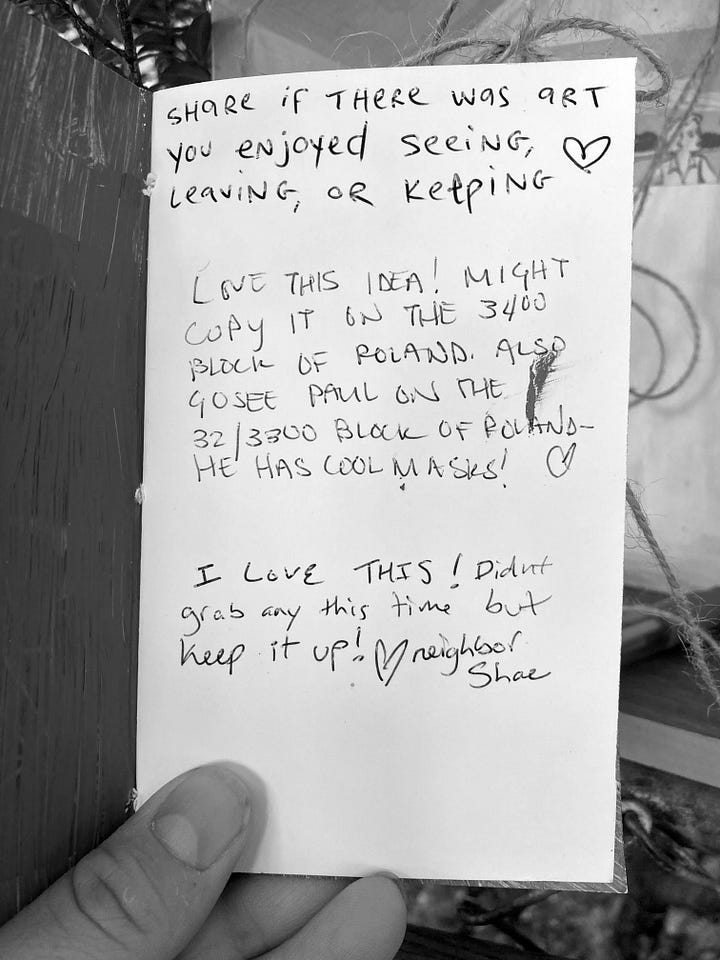 SHARE IF THERE WAS ART
YOU ENJOYED SEEING, ♡
LEAVING, OR KEEPING
LOVE THIS IDEA! MIGHT
COPY IT ON THE 3400
BLOCK OF ROLAND. ALSO
GO SEE PAUL ON THE
32/3300 BLOCK OF ROLAND-
HE HAS COOL MASKS! ♡
I LOVE THIS! Didnt
grab any this time but
keep it up! ♡ neighbor
Shae